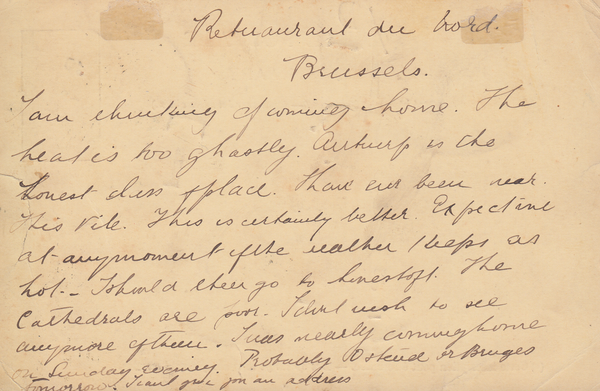 Restaurant du Nord.
Brussels.
I am thinking of coming home. The
heat is too ghastly. Antwerp is the
place. I have ever been near.
It is vile. This is certainly better. Expect me
at any moment if the weather keeps as
hot. - I should then go to Lowestoft. The
Cathedrals are poor. I don't wish to see
anymore of them. I was nearly coming home
on Sunday evening. Probably Ostend or Bruges
tomorrow. I can't give you an address